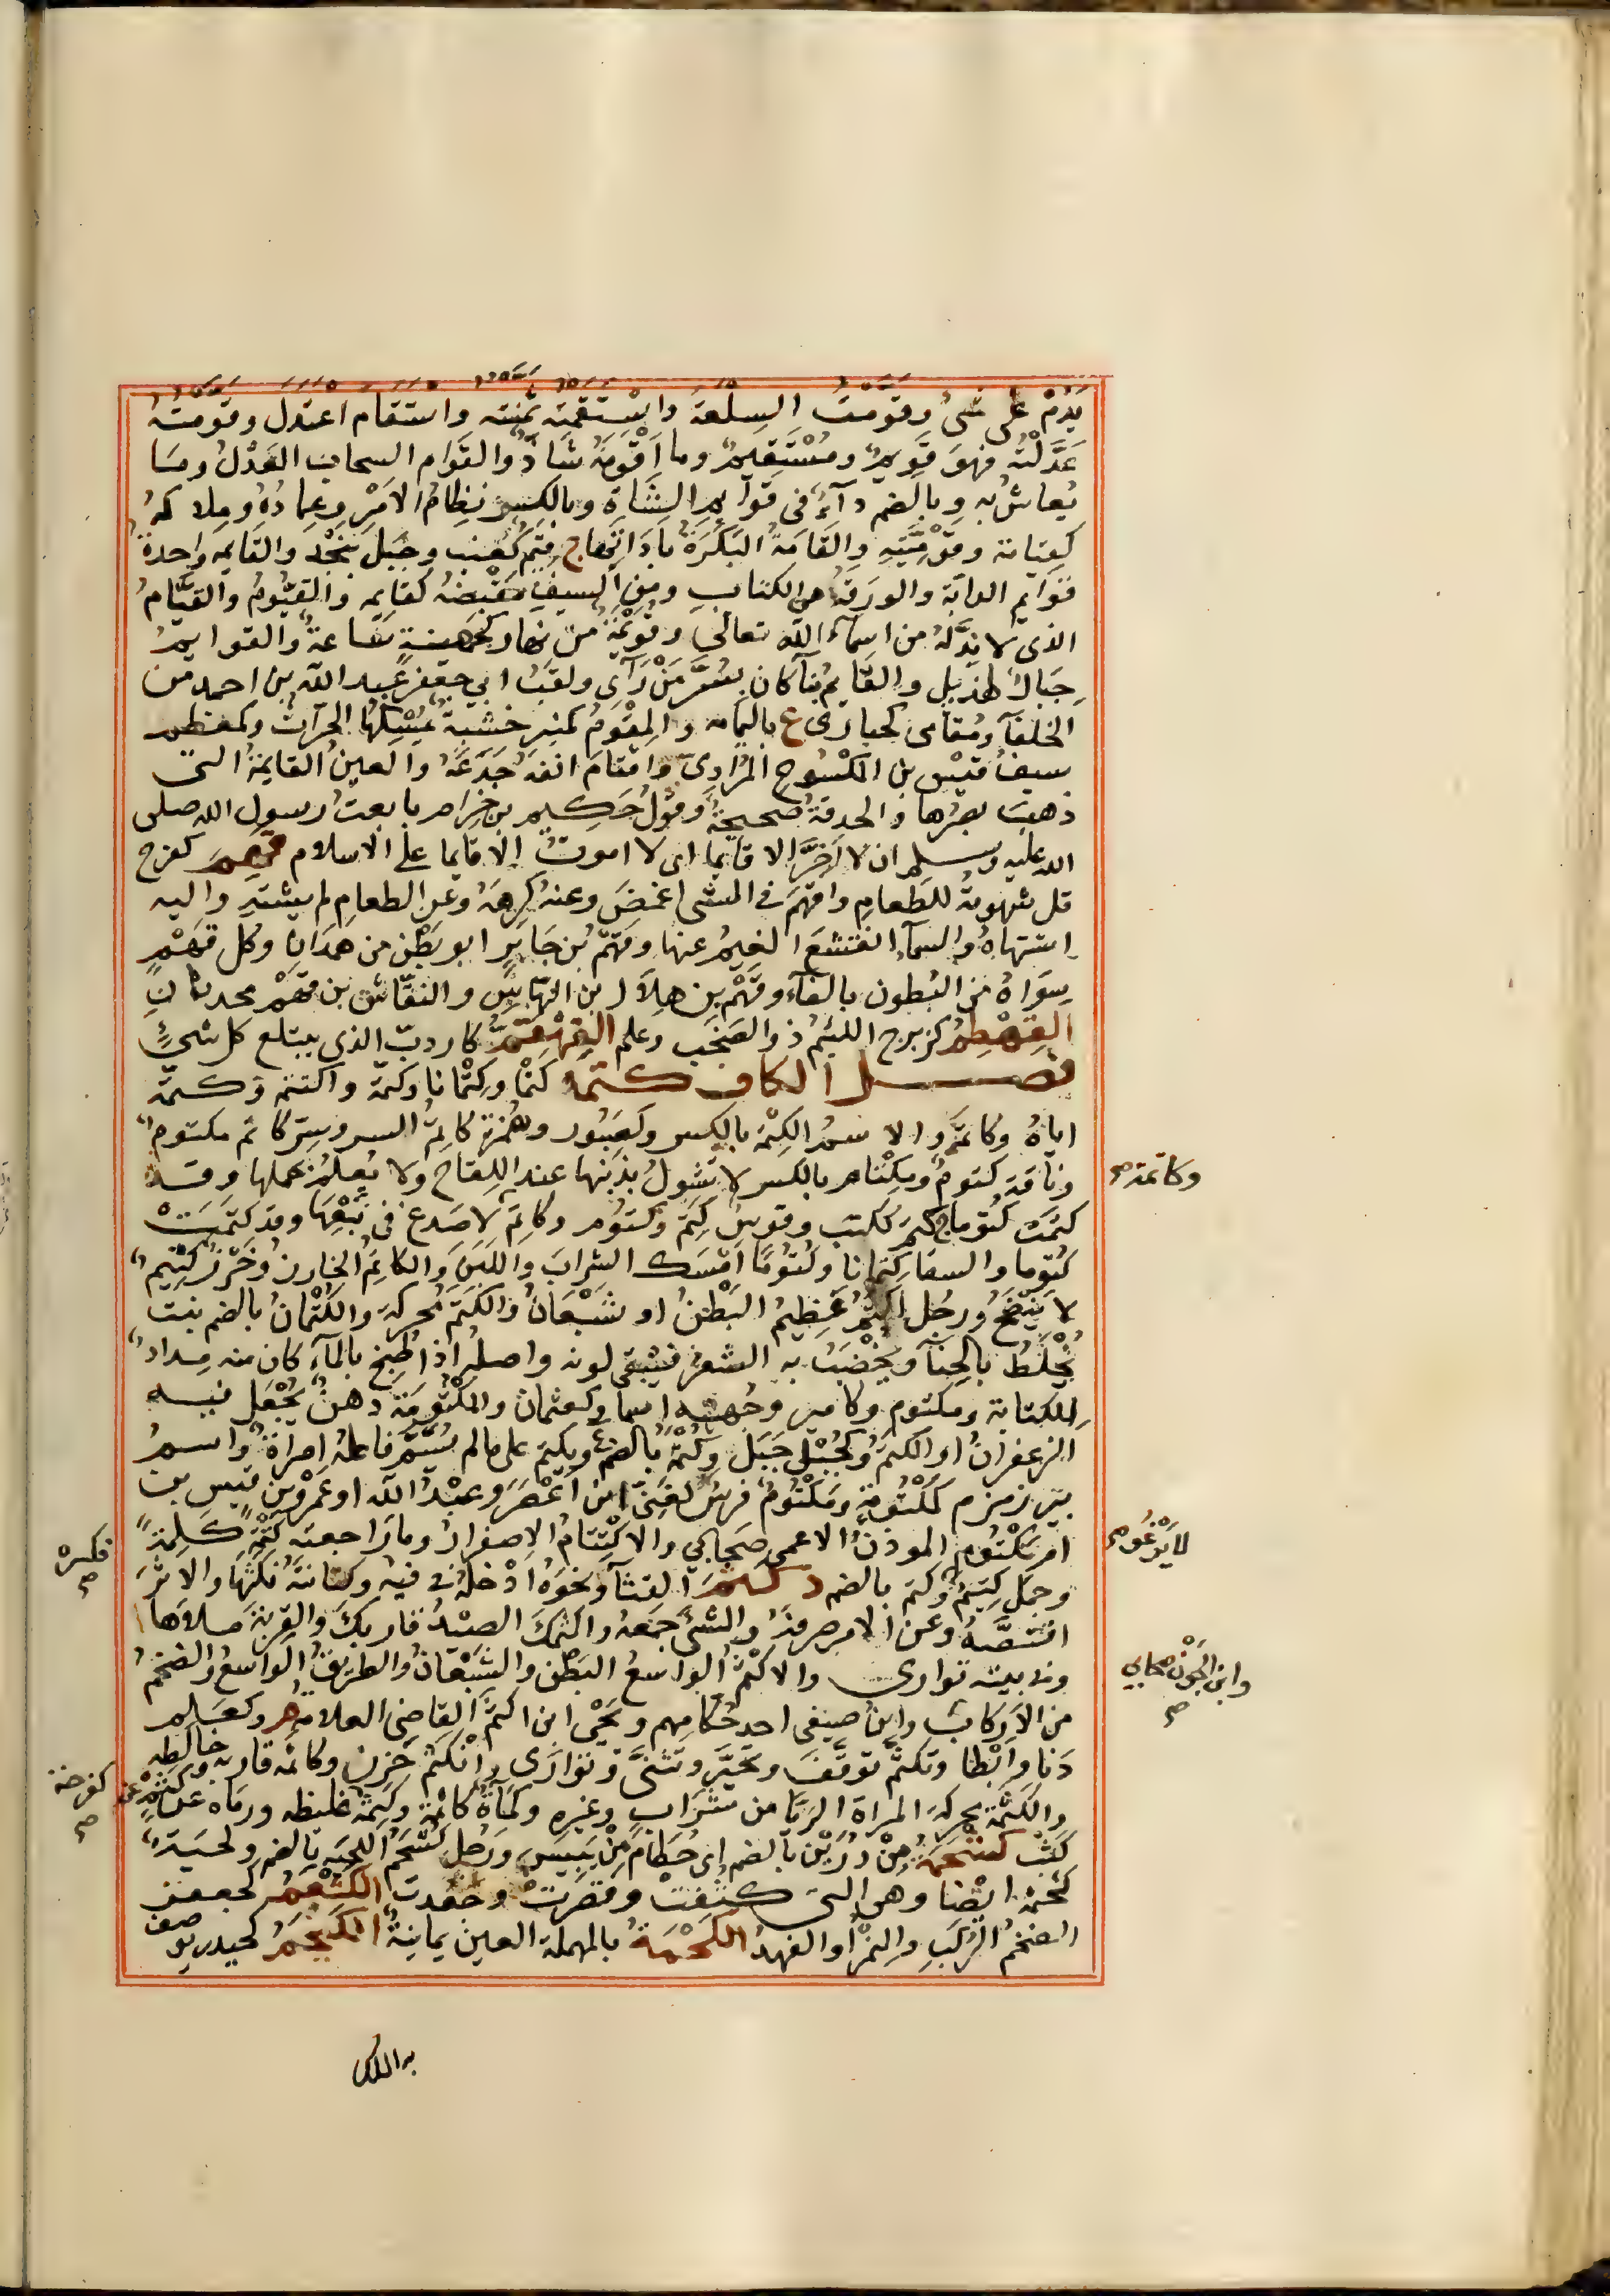 يَدُمْ على شئ وقَوَّمْتُ السِّلْعَةَ واسْتَقَمْتُه ثمّنته واستقام اعتدل وقوّمته
عَدَّلْتُه فهو قَوِيمٌ ومُسْتَقِيمٌ وما اَقْوَمَهُ شَاذٌّ والقَوَام السحاب العَدْلُ وما
يُعاش به وبالضم دآءٌ فى قوائم الشاة وبالكسر نِظامُ الامْرِ وعِمادُهُ وملاكهُ
كقِيَامة وقَوْمِيَّتِه والقَامَةُ البَكَرَةُ بادَاتِها ج قِيَمٌ كعِنَب وجَبَل بنَجْد والقايمة واحدة
قوايم الدابّة والورقة من الكتاب ومِن السيف مَقْبِضُه كقايمه والقَيُّومُ والقَيَّامُ
الذى لا نِدَّ لهُ من اسمآء الله تعالى وقُوَيْمَةٌ من نهار كجُهَينة ساعةٌ والقوايمُ
جِبَالٌ لهذيل والقايم بناء كان بسُرَّ مَنْ رَآى ولقبُ ابي جعفر عبد الله بن احمد من
الخلفآء ومُقامى كحبارى ع باليمامه والمِقْوَمُ كمنبر خشبةٌ يُمْسِكُها الحرّاثُ وكمعظم
سيفُ قَيْس بن المكْشُوحِ المُرَادِيّ واقتام انفه جَدَعَهُ والعينُ القايمةُ التى
ذهب بصَرُها والحدقةُ صحيحةٌ وقولُ حَكِيم بن حِزام بايعتُ رسول الله صلى
الله عليه وسلم ان لا اَخِرَّ الا قايما اى لا اموت إلا قايما على الاسلام قهم كفرح
قل شهوته للطعام واقهمَ فى الشى اغمضَ وعنهُ كرِهَهُ وعن الطعام لم يشتهِ واليه
اشتهاهُ والسمآء انقشعَ الغيمُ عنها وقَهْمُ بن جَابِر ابو بَطْن من هَمْدَان وكل قهمٍ
سِوَاهُ من البُطون بالفآء وقَهْمُ بن هِلَال ابن النهّاس والنقّاش بن قَهْم محدثان
القِهْطِمُ كزِبرج اللئيم ذو الصَخَب وعلم القِهْقَمُّ كاردبّ الذى يبتلع كل شيءٍ
فصـــــل الكاف كتمه كَتْمًا وكِتْمانا وكتّمه واكتتمه وكتمه
اياهُ وكاتمَه والاسمُ الكِتْمَة بالكسر وكصَبُور وهُمَزَة كاتِمُ السر وسِرّ كاتم مكتومٌ
وناقة كتومٌ ومِكْتام بالكسر لا تشولُ بذنبها عند اللِقاح ولا يُعلم بحملها وقد
كتمَتْ كُتوما ج كُتُم ككتب وقوس كِتم وكتوم وكاتم لا صَدع فى نَبْعها وقد كتَمَتْ
كُتوما والسقا كِتمانا وكُتُومًا اَمْسَك الشرابَ واللبَنَ والكاتِمُ الخارز وخَرْزٌ كَتيمٌ
لا يَنْضَحُ ورجل اكثم عَظِيمُ البَطْنِ او شَبْعَانُ والكَتَم محركة والكُتْمانُ بالضم نبت
يُخْلَطُ بالحِنآء ويُخْضَبُ به الشعر فيبقى لونه واصله اذا طُبِخَ بالمآء كان منه مِداد
للكتابة ومكتوم وكامير وجُهينة اسما وكعثمان والمكْتُومَة دهنٌ يُجْعَل فيه
الزعفران او الكتم وكجُبْلٍ جَبَل وكُتْمَة بالضم ع وتكتم على ما لم يُسَمَّ فاعله امراةٌ واسمُ
بير زمزم كمَكْتُومَة ومَكْتُومٌ فرسٌ لغَنِيّ ابن اعْصَرَ وعبْدُ الله او عَمْرو بن قيس بن
ام مَكْتُوم الموذنُ الاعمى صَحابى والاكْتِتَامُ الاصفرار وما راجعته كَتْمَةً كلِمَةً
وجمل كَتِيمٌ وكتم بالضم د كثم القثآء ونحوهُ ادْخله فى فيه وكنانته نكثها والاثرَ
اقتصّهُ وعن الامر صرفهُ والشئَ جمعَهُ واكثمك الصيدُ قاربك والقربة ملاها
وفى بيته توارى والاكثم الواسعُ البَطْن والشَبْعَانُ والطريقُ الواسعُ والضخمُ
من الاَرْكاب وابنُ صيفى احد حُكامهم ويَحْيَى ابن اكثمَ القاضى العلامة م وكعَلِم
دَنا وابْطَا وتكثّم توقفَ وتحيّرَ وتثنّى وتوارَى وانْكثم حَزِن وكاثمه قاربه وخالطه
والكَثَمَةُ محركة المراة الريّا من شرابٍ وغيره وكَمأةٌ كاثمة وكَثِمة غليظه ورماه عن كثم
كثب كثحمة مِنْ دَرِين بالضم اى حُطام مِنْ يَبِيس ورجل كُثْحُمُ اللحية بالضم ولحية
كثحمة ايضا وهى التى كثفت وقصرت وجعُدت الكَثْعَمُ كجعفر
الضخم الرَكَب والنمر او الفهد الكَحْمَة بالمهملة العين يمانية الكَيْخَم كحيدر يوصف
به الملك
وكاتمته صح
لا يَرْغُو صح
وابن الجَوْن صحابي صح
فكسره صح
كفرحة صح